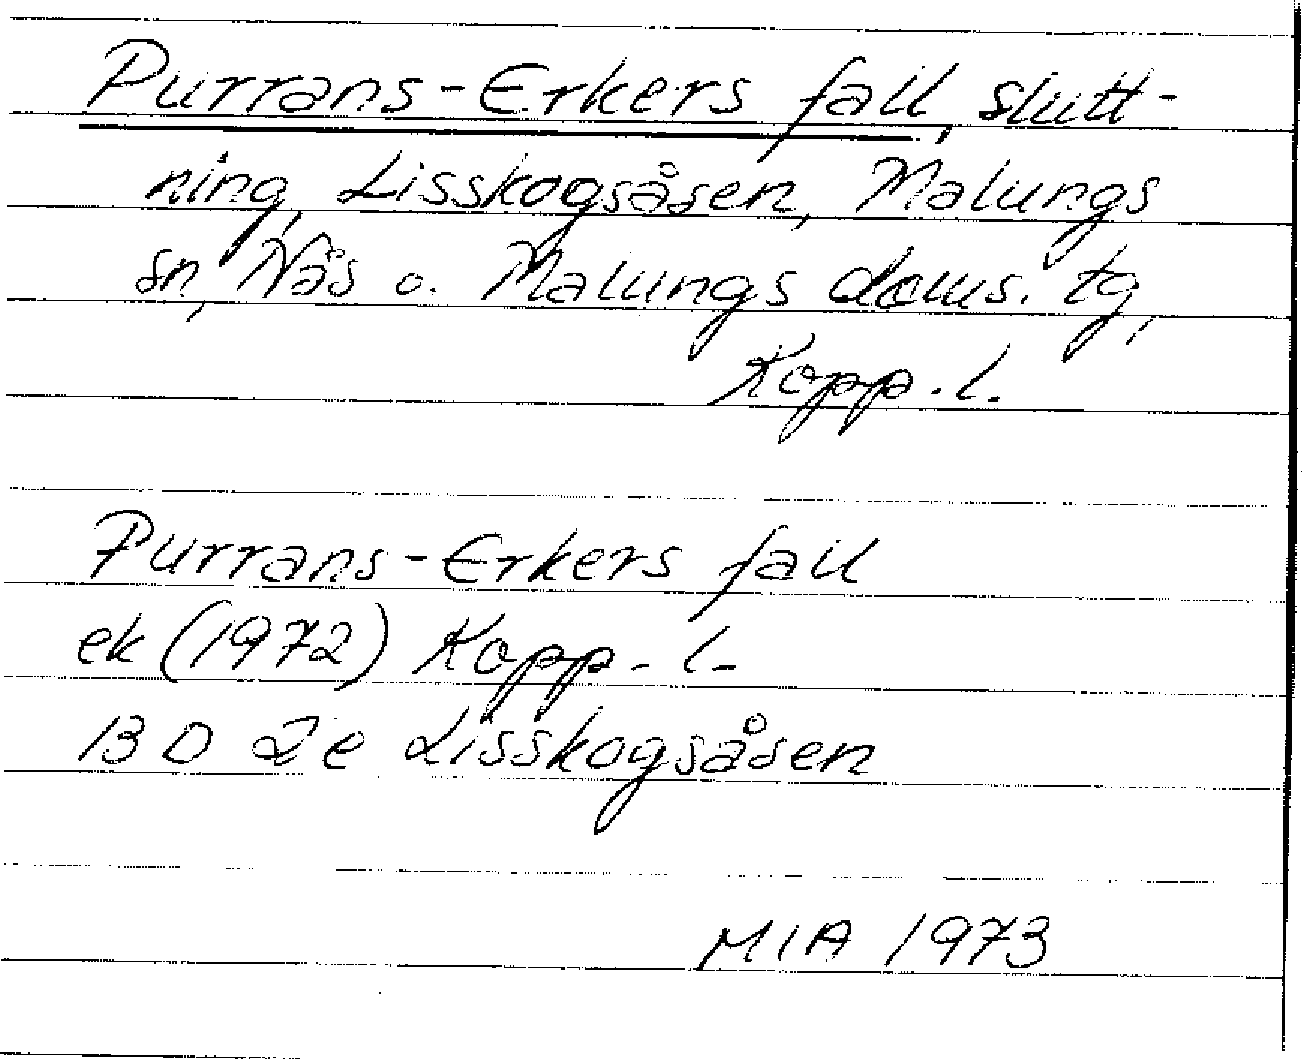 Purrans-Erkers fall, slutt-
ning, Lisskogsåsen, Malungs
sn, Näs o. Malungs doms. tg,
Kopp. l.
Purrans-Erkers fall
ek (1972) Kopp. l.
13 D 2e Lisskogsåsen
MIA 1973